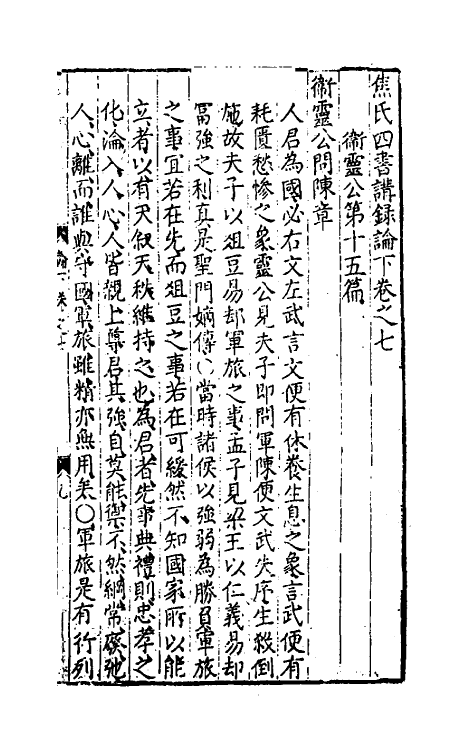 焦氏四書講録論下卷之七
衞靈公第十五篇
衞靈公問陳章
人君為國必右文左武言文便有休養生息之象言武便有
耗匱愁慘之象靈公見夫子即問軍陳便文武失序生殺倒
施故夫子以俎豆易却軍旅之事孟子見梁王以仁義易却
富強之利真是聖門嫡傳○當時諸侯以強弱為勝負軍旅
之事宜若在先而俎豆之事若在可緩然不知國家所以能
立者以有天叙天秩維持之也為君者先事典禮則忠孝之
化淪入人心人皆親上尊君其強自莫能禦不然綱常廢弛
人心離而誰與守國軍旅雖精亦無用矣○軍旅是有行列
論下卷之七
九